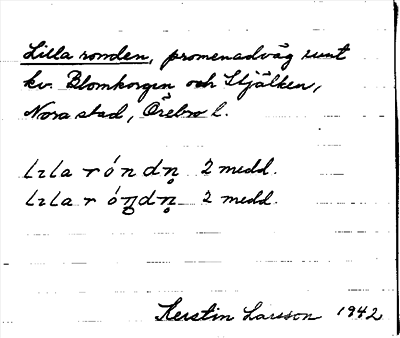 Lilla ronden, promenadväg runt
kv. Blomkorgen och Stjälken,
Nora stad, Örebro l.
lıla róndn̥ 2 medd.
lıla rón̥dn̥ 2 medd.
Kerstin Larsson 1942